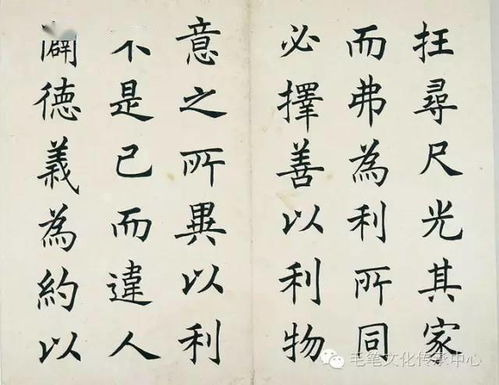 抂尋尺光其家
而弗為利所同
必擇善以利物
意之所異以利
不是已而違人
闢德義為約以
毛笔文化传承中心